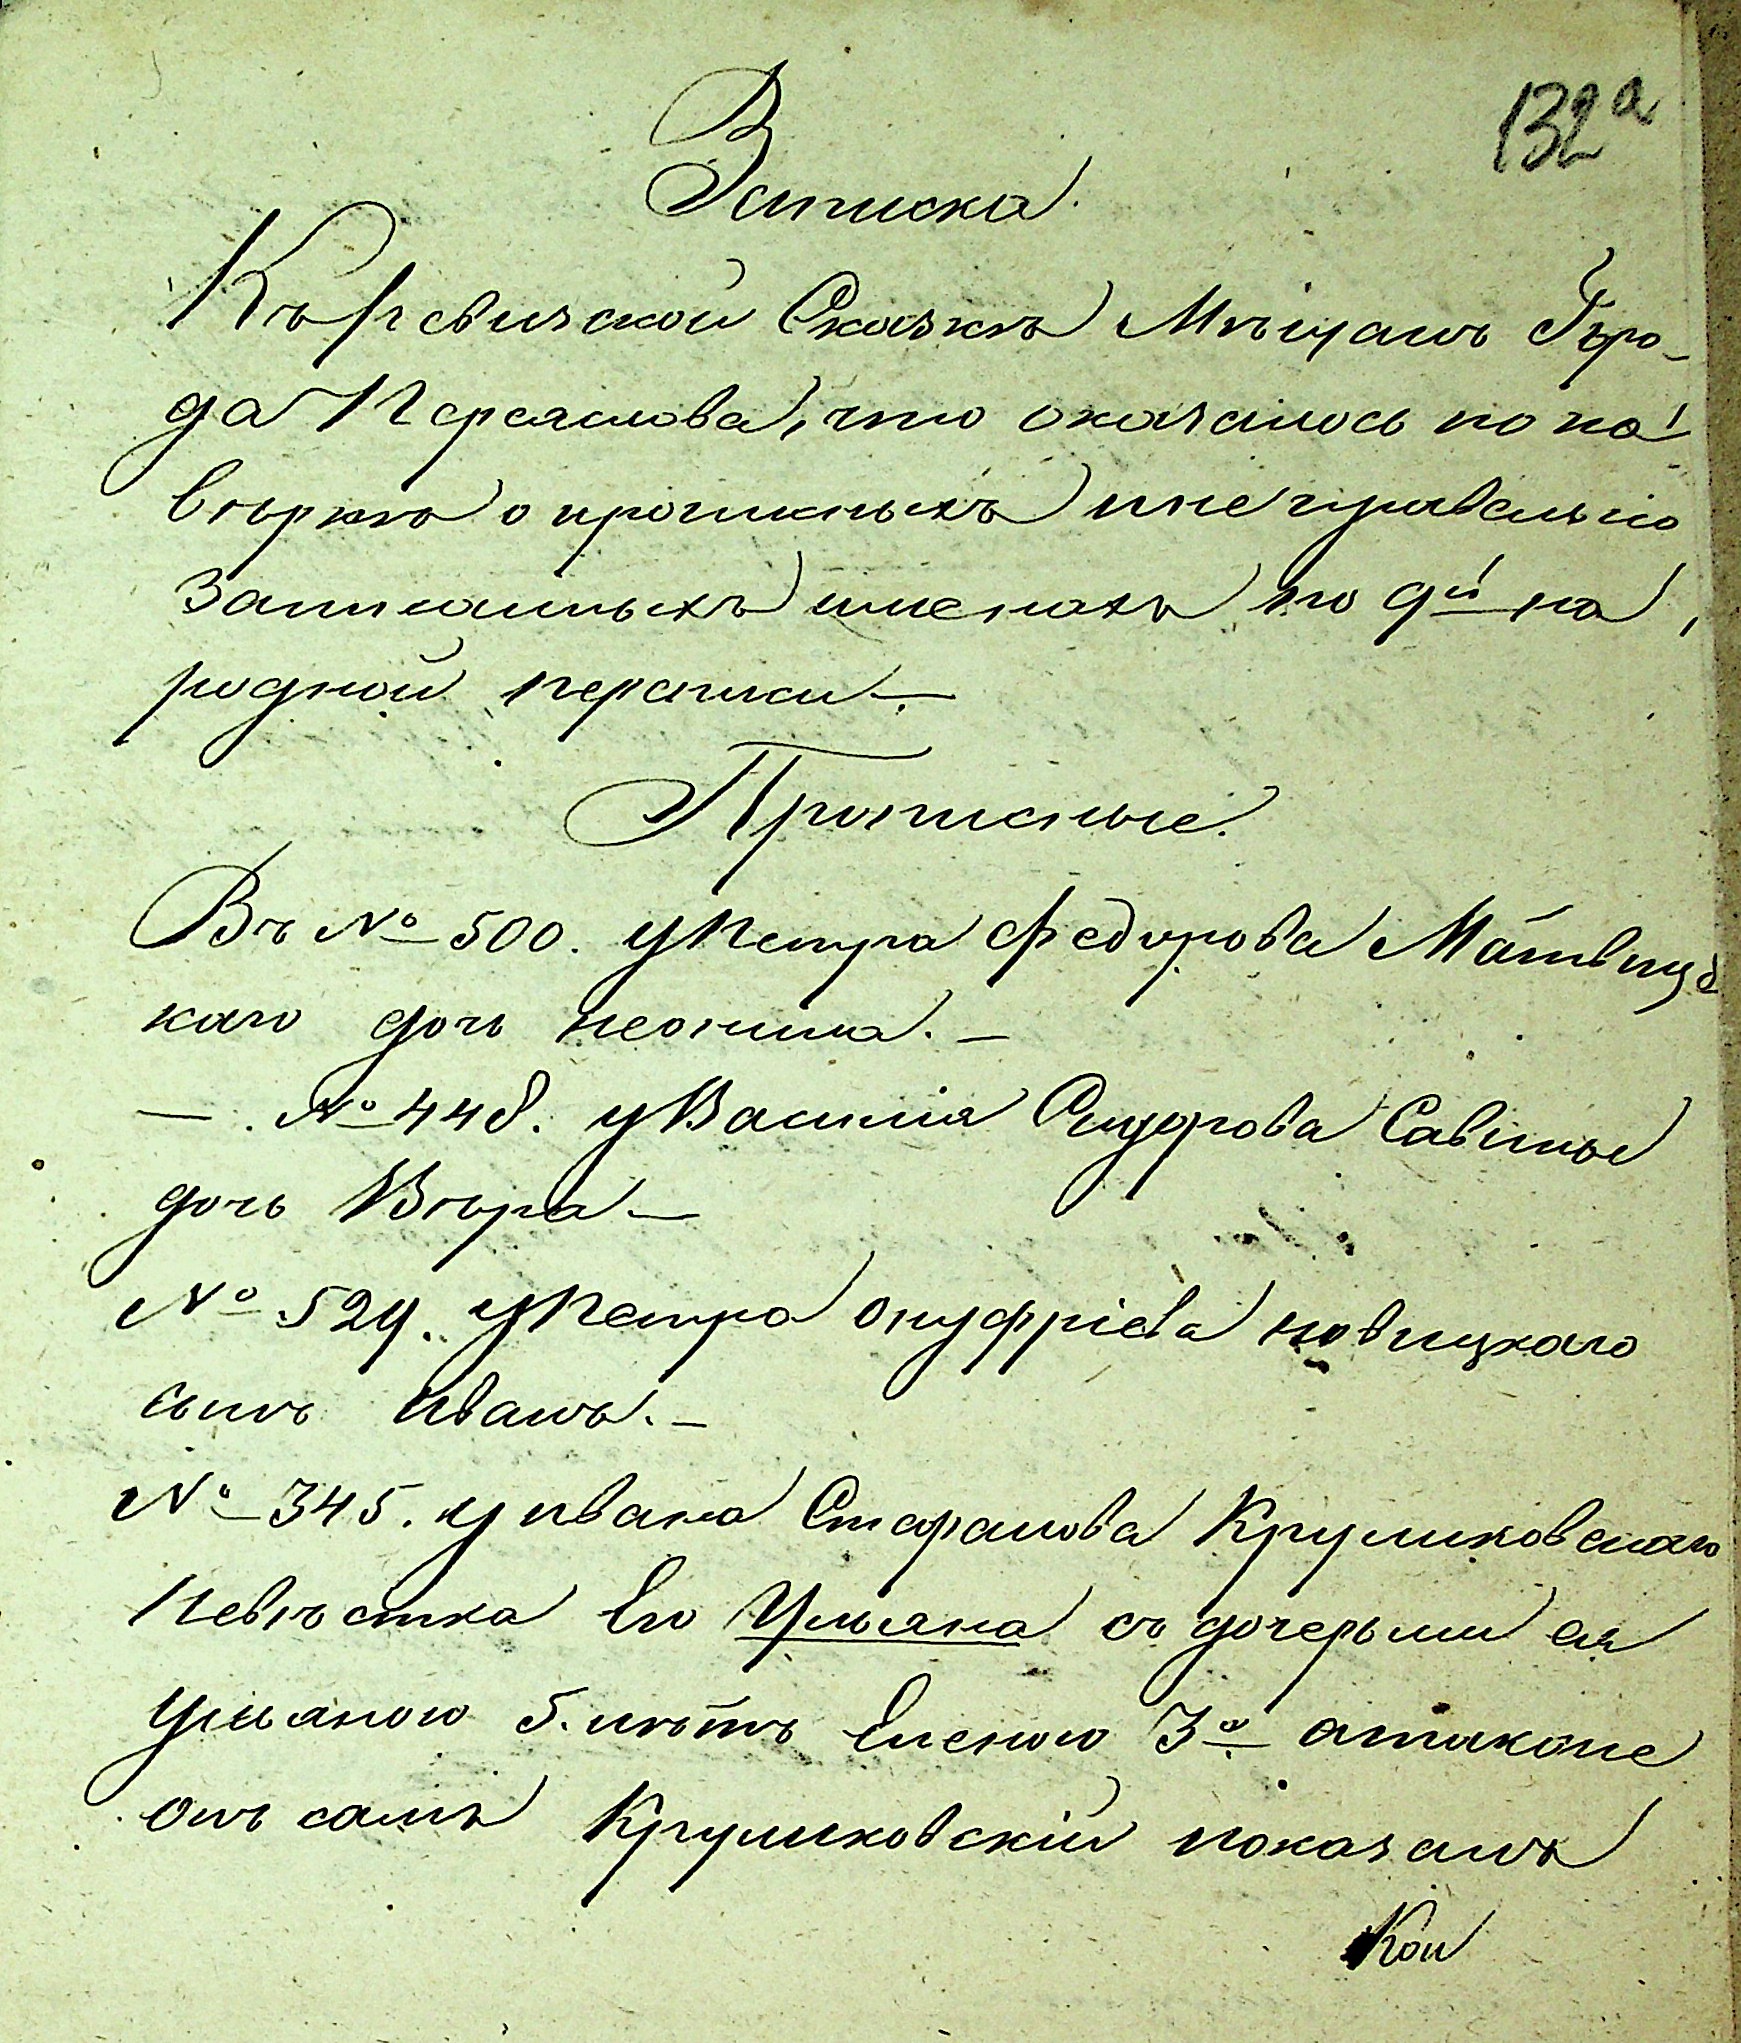 132а
Записка.
Къ Ревизской Сказкѣ Мѣщанъ Горо-
да Переяслова, что оказалось по по-
вѣркѣ о прописныхъ и не правельно
Записанныхъ именахъ по 9й на,
родной переписи.—
Прописные.
Въ № 500. у Петра Федорова Матвицс
каго дочь неонила. —
— . № 448. у Василія Сидорова Савины
дочь Вѣра —
№ 529. у Петра онуфріева новицкаго
сынъ иванъ. —
№ 345. у ивана Стефанова Круликовскаго
Невѣстка Его Ульяна съ дочерьми ея
Ульяною 5. лѣтъ Еленою 3о атакоже
онъ самъ Круликовскій показанъ
Кои